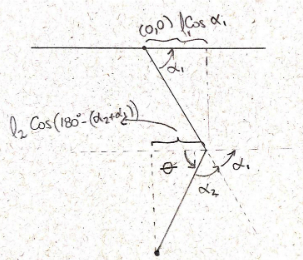 (0,0) l₁Cos α₁
α₁
l₂ Cos(180°-(α₂+α₁))
θ
α₁
α₂